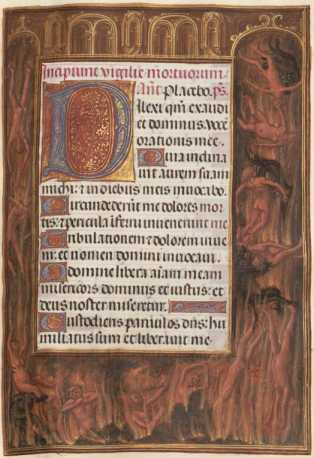 Incipiunt vigilie mortuorum
Ant. Placebo. ps.
Dilexi qm̄ exaudi
et dominus vocē
orationis mee.
Quia inclina
uit aurem suam
michi: et in diebus meis inuocabo.
Circundederūt me dolores mor
tis: et pericula īferni inuenerunt me
Tribulationem et dolorem inue
ni: et nomen domini inuocaui.
O domine libera aīam meam
misericors dominus et iustus: et
deus noster miseretur.
Custodiens paruulos dn̄s: hu
miliatus sum et liberauit me.